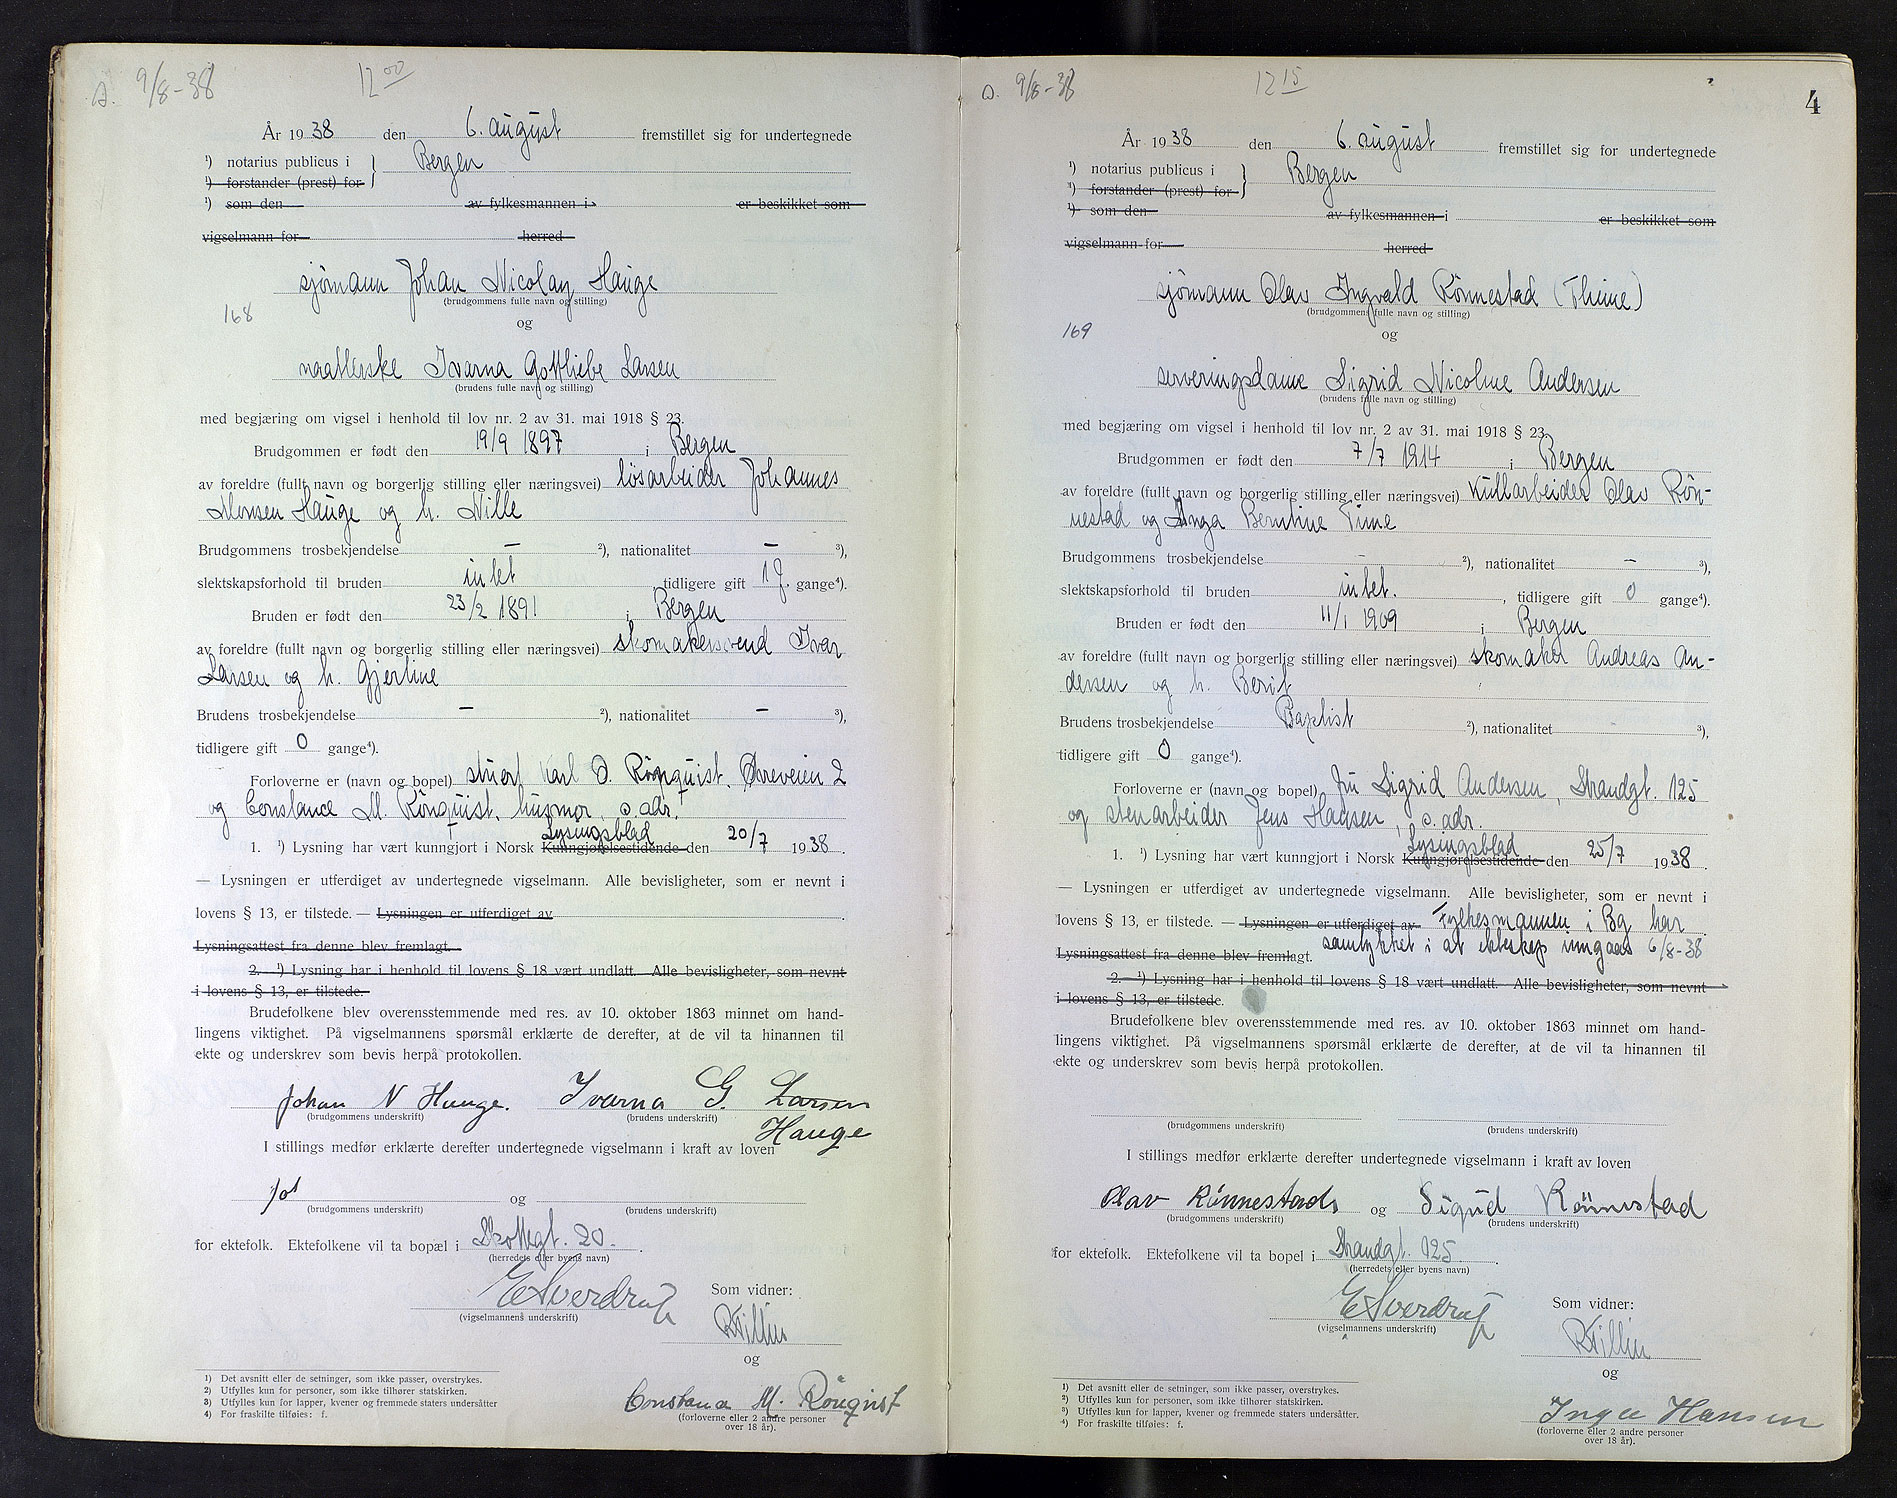 D. 9/8-38 12 00
År 1938 den 6. august fremstillet sig for undertegnede
¹) notarius publicus i } Bergen
¹) forstander (prest) for
¹) som den av fylkesmannen i er beskikket som
vigselmann for herred
sjömann Johan Nicolay Hauge
(brudgommens fulle navn og stilling)
168
og
naatlerske Ivarna Gottliebe Larsen
(brudens fulle navn og stilling)
med begjæring om vigsel i henhold til lov nr. 2 av 31. mai 1918 § 23.
Brudgommen er født den 19/9 1897 i Bergen
av foreldre (fullt navn og borgerlig stilling eller næringsvei) løsarbeider Johannes
Monsen Hauge og h. Nille
Brudgommens trosbekjendelse — ²), nationalitet — ³),
slektskapsforhold til bruden intet tidligere gift 1 f. gange⁴).
Bruden er født den 23/2 1891 i Bergen
av foreldre (fullt navn og borgerlig stilling eller næringsvei) skomakersvend Ivar
Larsen og h. Gjertine
Brudens trosbekjendelse — ²), nationalitet — ³),
tidligere gift 0 gange⁴).
Forloverne er (navn og bopel) stuert Karl O. Rönquist, Øvreveien 2
og Constance M. Rönquist, husmor, s. adr.
Lysingsblad
1. ¹) Lysning har vært kunngjort i Norsk Kunngjørelsestidende den 20/7 1938.
— Lysningen er utferdiget av undertegnede vigselmann. Alle bevisligheter, som er nevnt i
lovens § 13, er tilstede. — Lysningen er utferdiget av
Lysningsattest fra denne blev fremlagt.
2. ¹) Lysning har i henhold til lovens § 18 vært undlatt. Alle bevisligheter, som nevnt
i lovens § 13, er tilstede.
Brudefolkene blev overensstemmende med res. av 10. oktober 1863 minnet om hand-
lingens viktighet. På vigselmannens spørsmål erklærte de derefter, at de vil ta hinannen til
ekte og underskrev som bevis herpå protokollen.
Johan N Hauge. Ivarna G. Larsen
(brudgommens underskrift) (brudens underskrift)
Hauge
I stillings medfør erklærte derefter undertegnede vigselmann i kraft av loven
Joh og
(brudgommens underskrift) (brudens underskrift)
for ektefolk. Ektefolkene vil ta bopæl i Skottegt. 20.
(herredets eller byens navn)
E Sverdrup Som vidner:
(vigselmannens underskrift)
og
Constance M. Rönqvist
(forloverne eller 2 andre personer
over 18 år).
1) Det avsnitt eller de setninger, som ikke passer, overstrykes.
2) Utfylles kun for personer, som ikke tilhører statskirken.
3) Utfylles kun for lapper, kvener og fremmede staters undersåtter
4) For fraskilte tilføies: f.
D. 9/8-38 12 15
4
År 1938 den 6. august fremstillet sig for undertegnede
¹) notarius publicus i } Bergen
¹) forstander (prest) for
¹) som den av fylkesmannen i er beskikket som
vigselmann for herred
sjömann Olav Ingvald Rönnestad (Thime)
(brudgommens fulle navn og stilling)
169
og
serveringsdame Sigrid Nicoline Andersen
(brudens fulle navn og stilling)
med begjæring om vigsel i henhold til lov nr. 2 av 31. mai 1918 § 23.
Brudgommen er født den 7/7 1914 i Bergen
av foreldre (fullt navn og borgerlig stilling eller næringsvei) Kullarbeider Olav Rön-
nestad og Inga Berntine Time
Brudgommens trosbekjendelse — ²), nationalitet — ³),
slektskapsforhold til bruden intet. , tidligere gift 0 gange⁴).
Bruden er født den 11/1 1909 i Bergen
av foreldre (fullt navn og borgerlig stilling eller næringsvei) skomaker Andreas An-
dersen og h. Berit
Brudens trosbekjendelse Baptist ²), nationalitet ³),
tidligere gift 0 gange⁴).
Forloverne er (navn og bopel) fru Sigrid Andersen, Strandgt. 125
og stenarbeider Jens Hansen, s. adr.
Lysingsblad
1. ¹) Lysning har vært kunngjort i Norsk Kunngjørelsestidende den 25/7 1938.
— Lysningen er utferdiget av undertegnede vigselmann. Alle bevisligheter, som er nevnt i
lovens § 13, er tilstede. — Lysningen er utferdiget av Fylkesmannen i Bg har
Lysningsattest fra denne blev fremlagt. samtykket i at ekteskap inngaas 6/8-38
2. ¹) Lysning har i henhold til lovens § 18 vært undlatt. Alle bevisligheter, som nevnt
i lovens § 13, er tilstede.
Brudefolkene blev overensstemmende med res. av 10. oktober 1863 minnet om hand-
lingens viktighet. På vigselmannens spørsmål erklærte de derefter, at de vil ta hinannen til
ekte og underskrev som bevis herpå protokollen.
(brudgommens underskrift) (brudens underskrift)
I stillings medfør erklærte derefter undertegnede vigselmann i kraft av loven
Olav Rönnestad og Sigrid Rönnestad
(brudgommens underskrift) (brudens underskrift)
for ektefolk. Ektefolkene vil ta bopel i Strandgt. 125.
(herredets eller byens navn)
E Sverdrup Som vidner:
(vigselmannens underskrift)
og
Inga Hansen
(forloverne eller 2 andre personer
over 18 år).
1) Det avsnitt eller de setninger, som ikke passer, overstrykes.
2) Utfylles kun for personer, som ikke tilhører statskirken.
3) Utfylles kun for lapper, kvener og fremmede staters undersåtter.
4) For fraskilte tilføies: f.